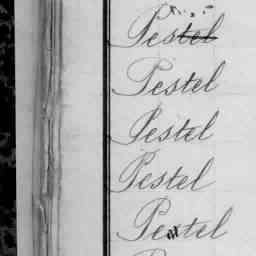 Pestel
Pestel
Pestel
Pestel
Pestel